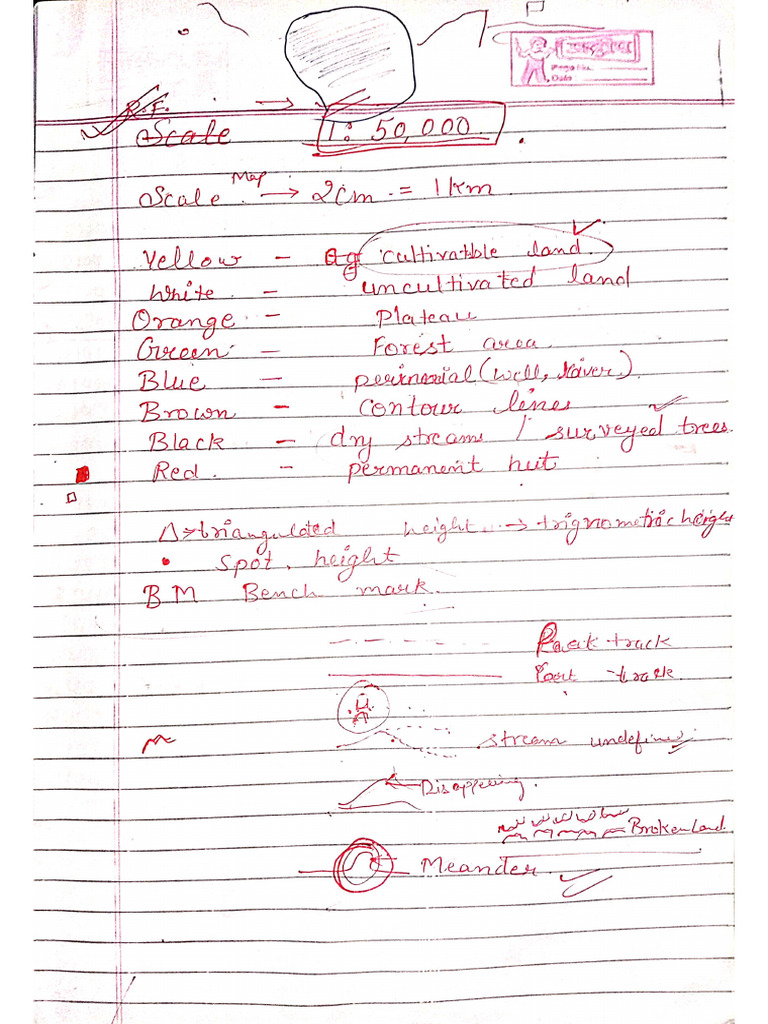 Page No.
Date
R.F. →
Scale 1: 50,000.
Scale Map → 2cm. = 1 km
Yellow - cultivatible land.
White - uncultivated land
Orange - Plateau
Green - Forest area
Blue - (well, river).
Brown - Contour lines
Black - dry streams / surveyed trees.
Red. - permanent hut
△→ triangulated height. → trignometric height
• Spot. height
BM Bench mark.
Pack track
Foot track
stream undefined
Disappering.
Broken Land
Meander.